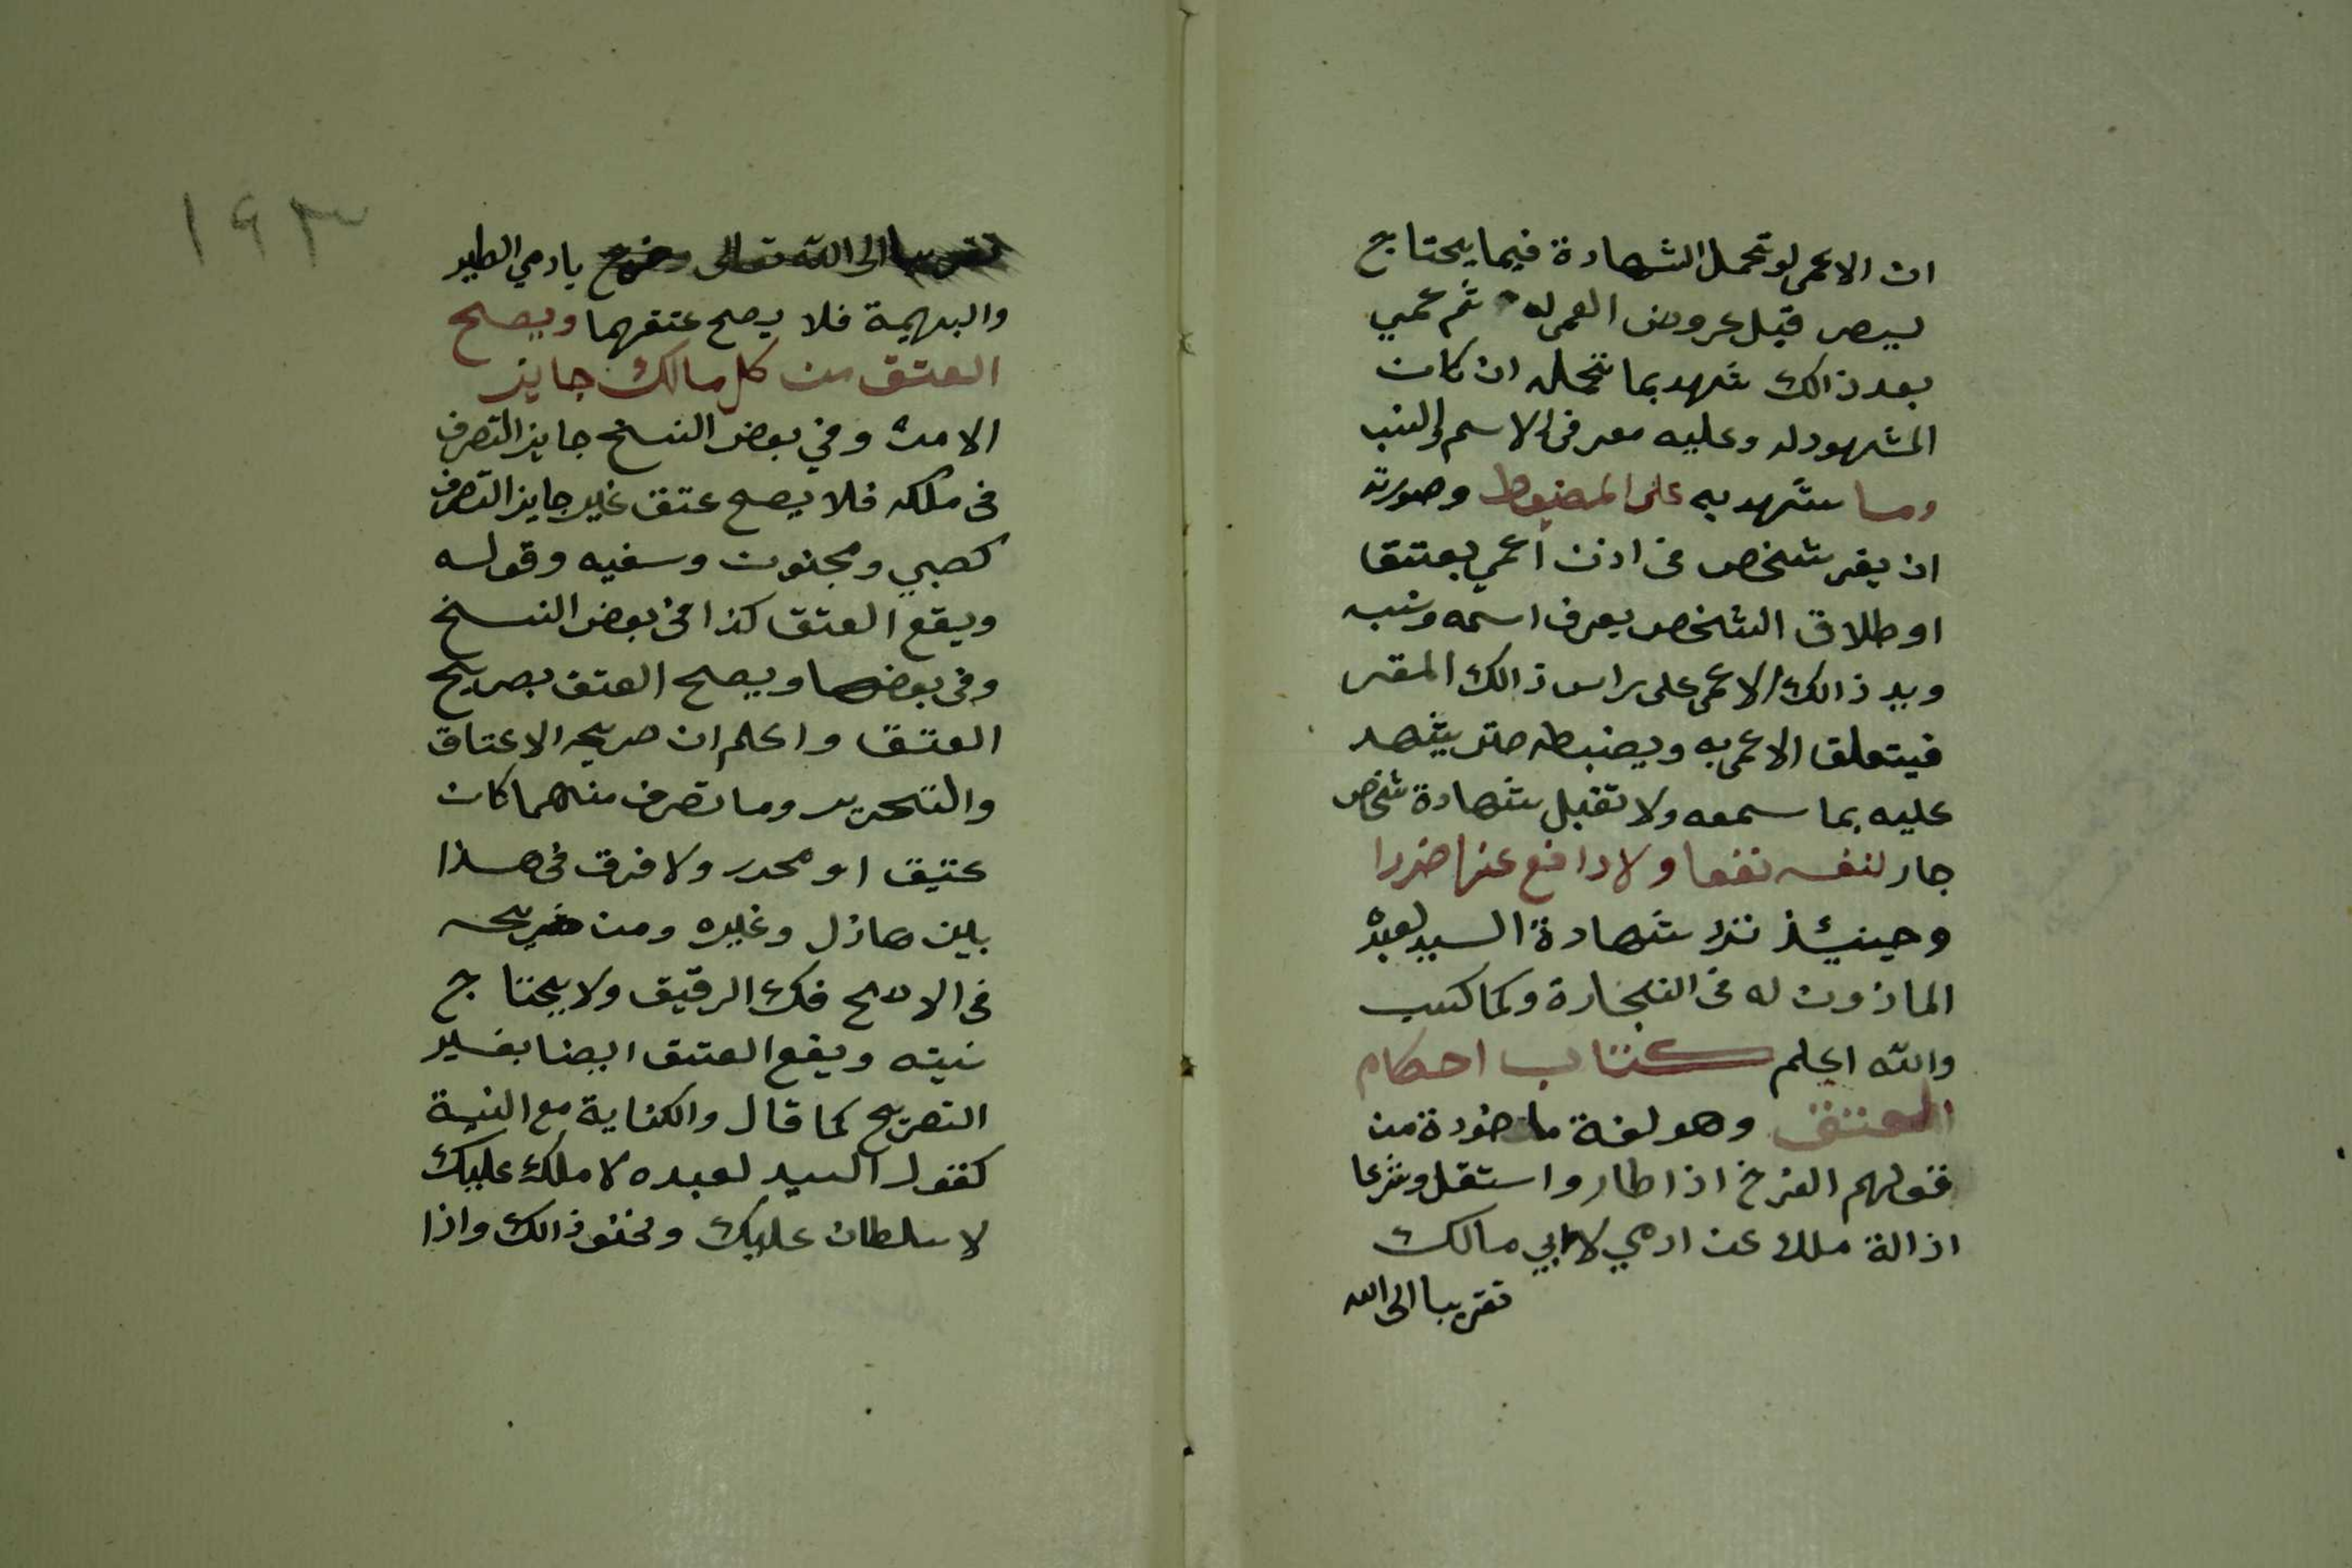 ان الاعمى لو تحمل الشهادة فيما يحتاج
لبصر قبل عروض العمى له ثم عمي
بعد ذالك شهد بما تحمله ان كان
المشهود له وعليه معرفى الاسم والنسب
وما شهد به على المضبوط وصورته
ان يقر شخص فى اذن اعمى بعتقا
او طلاق الشخص يعرف اسمه ونسبه
ويد ذالك الاعمى على راس ذالك المقر
فيتعلق الاعمى به ويضبطه حتى يشهد
عليه بما سمعه ولا تقبل شهادة شخص
جار لنفسه نفعا ولا دافع عنها ضررا
وحينئذ ترد شهادة السيد لعبده
الماذون له فى التجارة وكما كتب
والله اعلم كتاب احكام
العتق وهو لغة ماخوذة من
قولهم الفرخ اذا طار واستقل وشرعا
ازالة ملك عن ادمي لا الى مالك
تقربا الى الله
تقربا الى الله تعالى وخرج بادمي الطير
والبهيمة فلا يصح عتقهما ويصح
العتق من كل مالك جايز
الامر وفي بعض النسخ جايز التصرف
فى ملكه فلا يصح عتق غير جايز التصرف
كصبي ومجنون وسفيه وقوله
ويقع العتق كذا فى بعض النسخ
وفى بعضها ويصح العتق بصريح
العتق واعلم ان صريحه الاعتاق
والتحرير وما تصرف منهما كان
عتيق او محرر ولا فرق فى هذا
بين هازل وغيره ومن صريحه
فى الاصح فك الرقيق ولا يحتاج
نيته ويقع العتق ايضا بغير
التصريح كما قال والكناية مع النية
كقول السيد لعبده لا ملك عليك
لا سلطان عليك ونحو ذالك واذا
١٩٣